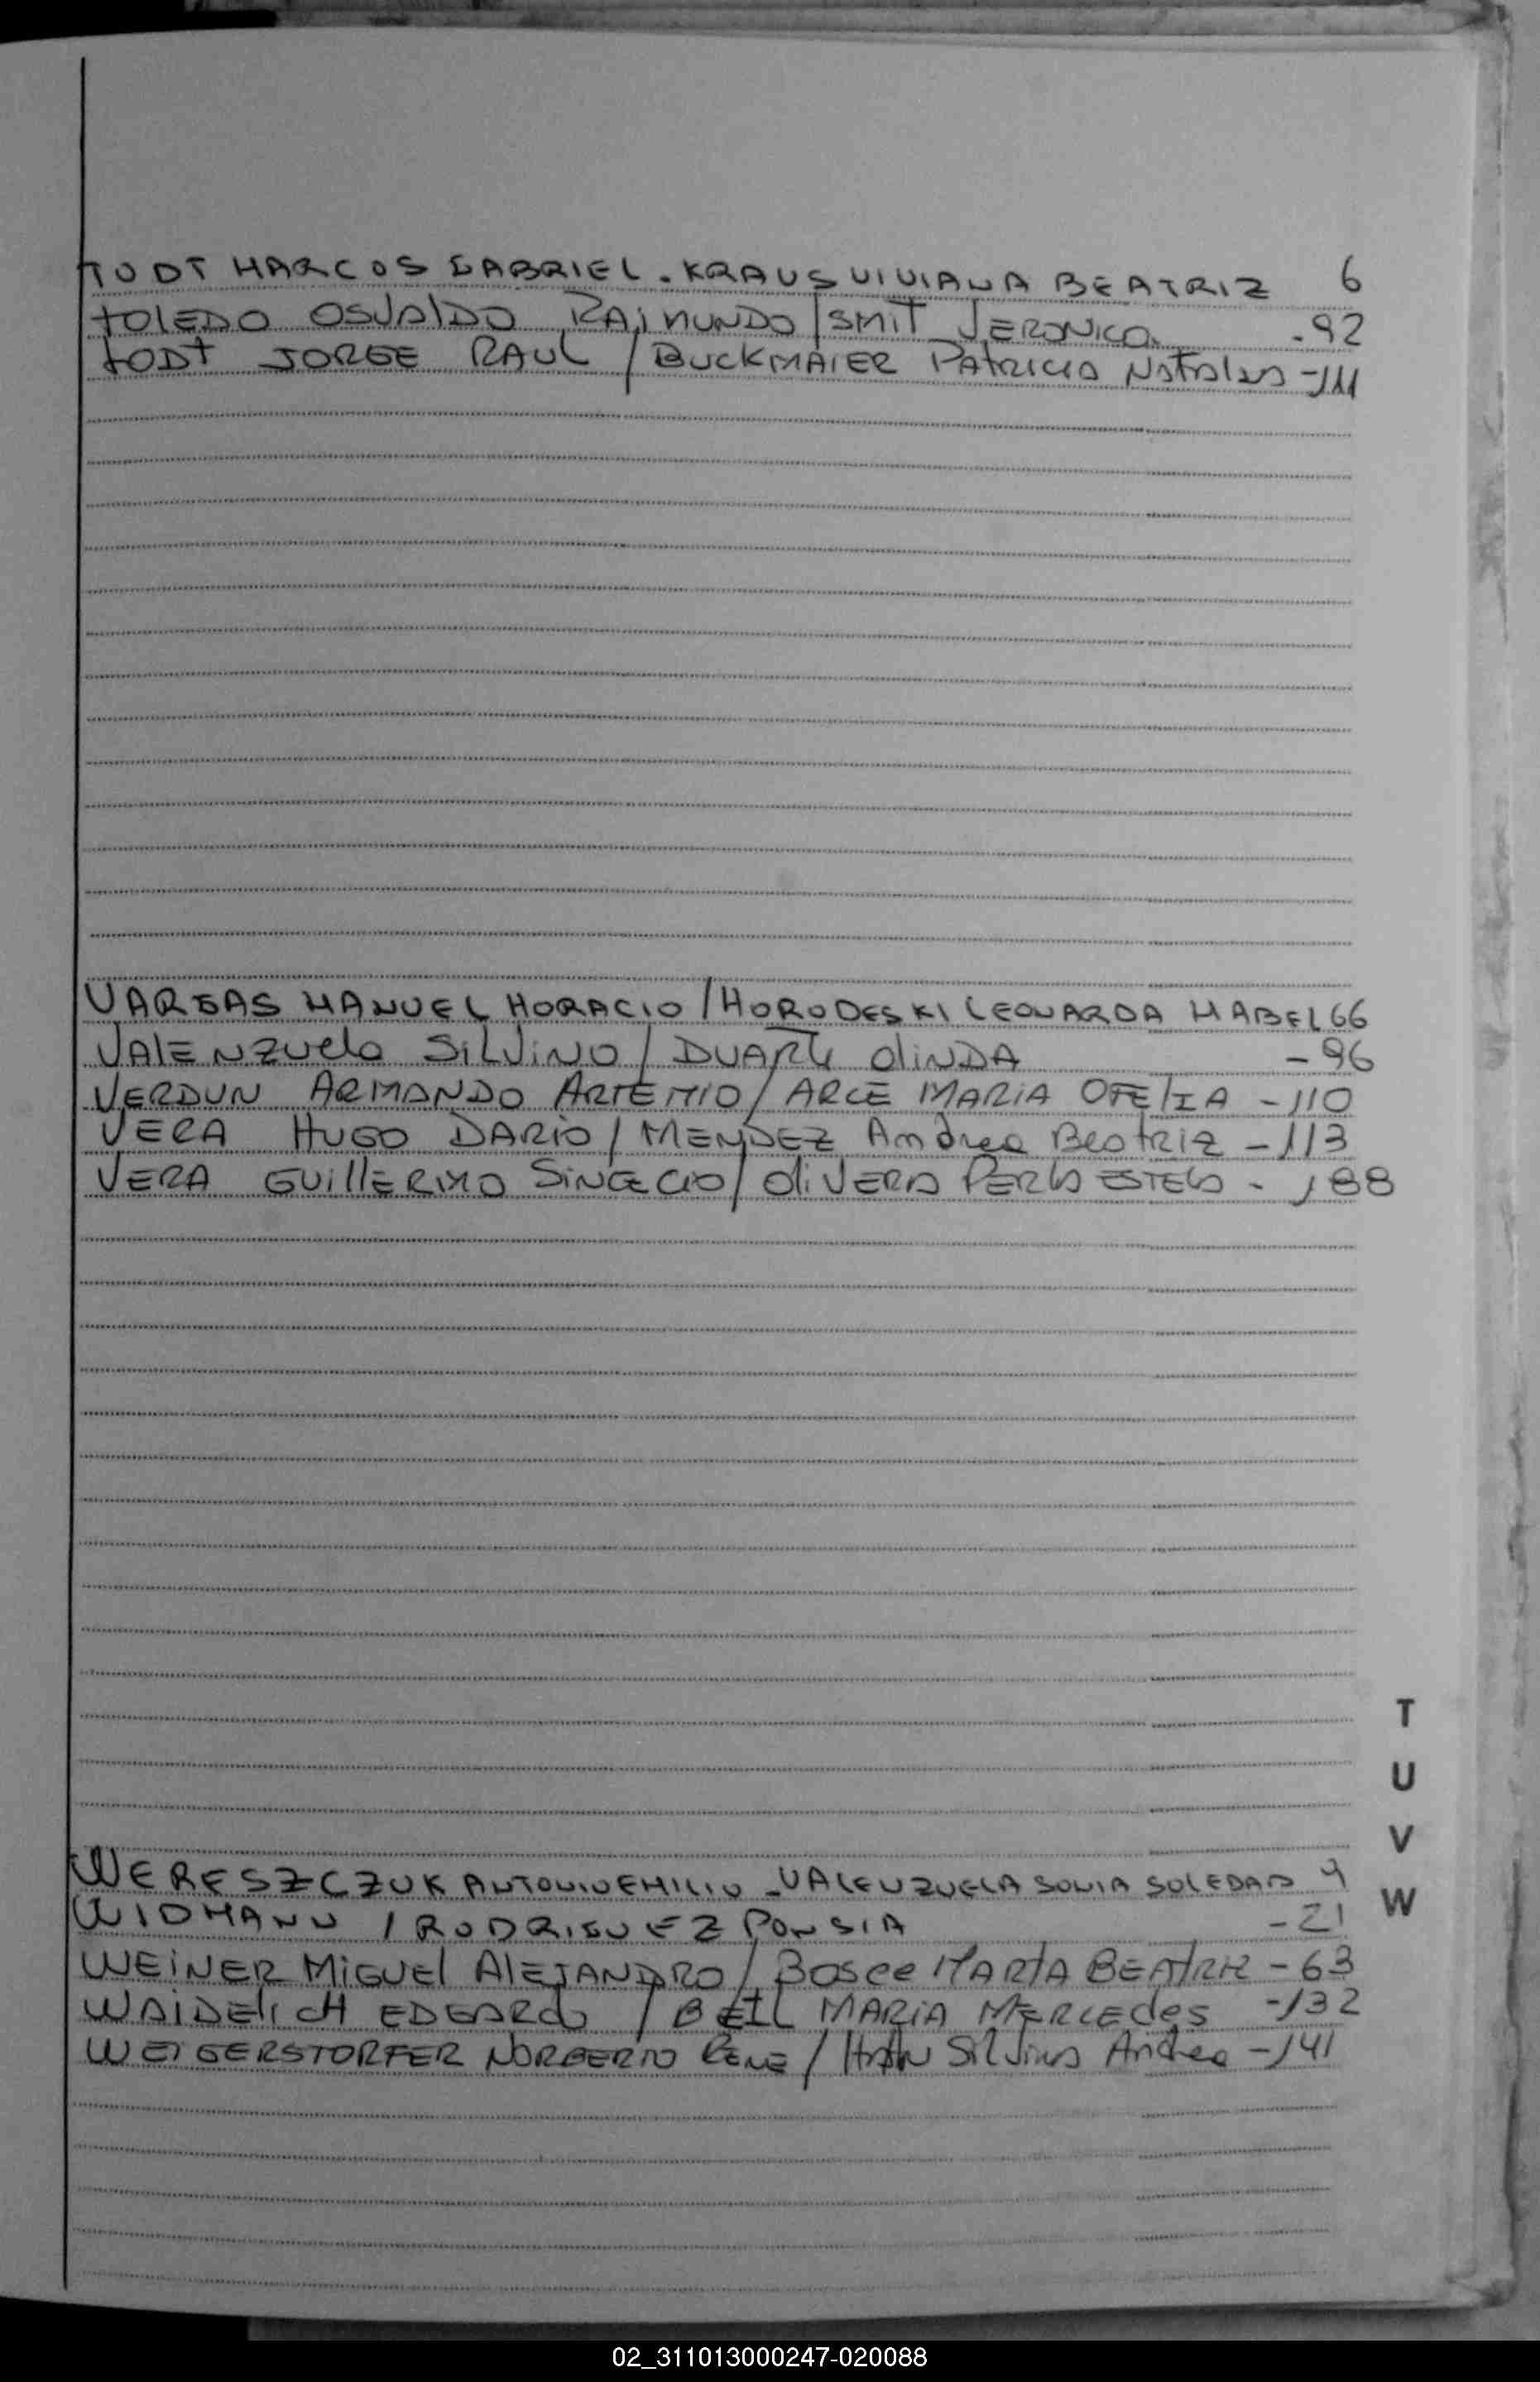 TODT MARCOS GABRIEL - KRAUS VIVIANA BEATRIZ 6
TOLEDO OSVALDO RAIMUNDO / SMIT VERONICA - 92
TODT JORGE RAUL / BUCKMAIER PATRICIA NATALIA - 111
VARGAS MANUEL HORACIO / HORODESKI LEONARDA MABEL 66
VALENZUELA SILVINO / DUARTE OLINDA - 96
VERDUN ARMANDO ARTEMIO / ARCE MARIA OFELIA - 110
VERA HUGO DARIO / MENDEZ Andrea Beatriz - 113
VERA GUILLERMO / OLIVERA PERLA ESTELA - 188
T
U
V
WERESZCZUK ANTONIO EMILIO - VALENZUELA SONIA SOLEDAD 9
W
WIDMANN / RODRIGUEZ - 21
WEINER MIGUEL ALEJANDRO / MARIA BEATRIZ - 63
WAIDELICH EDGARDO / BEIL MARIA MERCEDES - 132
WEIGERSTORFER NORBERTO RENE / HAHN SILVINA Andrea - 141
02_311013000247-020088